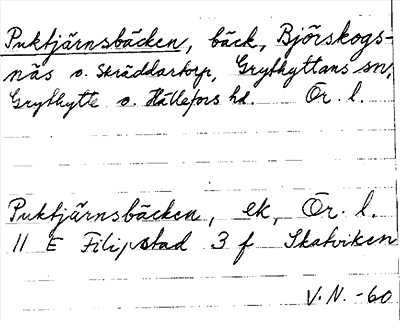 Puktjärnsbäcken, bäck, Björskogs-
näs o. Skräddartorp, Grythyttans sn,
Grythytte o. Hällefors hd. Ör. l.
Puktjärnsbäcken, ek, Ör. l.
11 E Filipstad 3 f Skatviken
V.N. -60